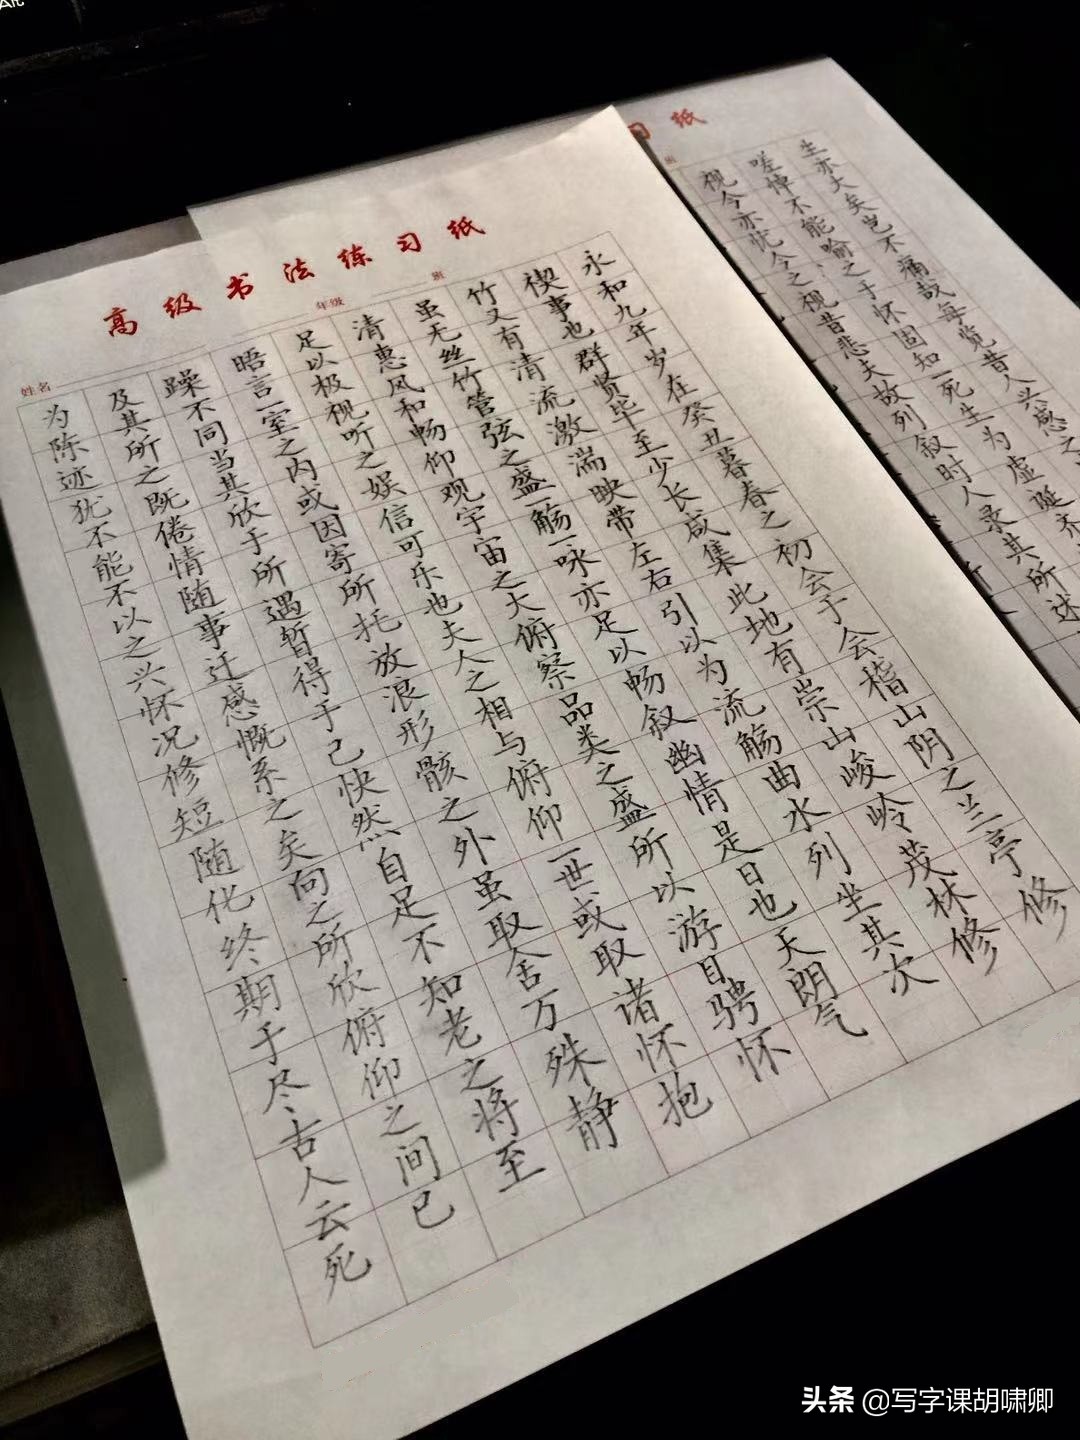 Alt
高级书法练习纸
姓名 年级 班
永和九年岁在癸丑暮春之初会于会稽山阴之兰亭修
禊事也群贤毕至少长咸集此地有崇山峻岭茂林修
竹又有清流激湍映带左右引以为流觞曲水列坐其次
虽无丝竹管弦之盛一觞一咏亦足以畅叙幽情是日也天朗气
清惠风和畅仰观宇宙之大俯察品类之盛所以游目骋怀
足以极视听之娱信可乐也夫人之相与俯仰一世或取诸怀抱
晤言一室之内或因寄所托放浪形骸之外虽取舍万殊静
躁不同当其欣于所遇暂得于己快然自足不知老之将至
及其所之既倦情随事迁感慨系之矣向之所欣俯仰之间已
为陈迹犹不能不以之兴怀况修短随化终期于尽古人云死
习纸
班
生亦大矣岂不痛哉每览昔人兴感之
嗟悼不能喻之于怀固知一死生为虚诞齐
视今亦犹今之视昔悲夫故列叙时人录其所述
头条 @写字课胡啸卿